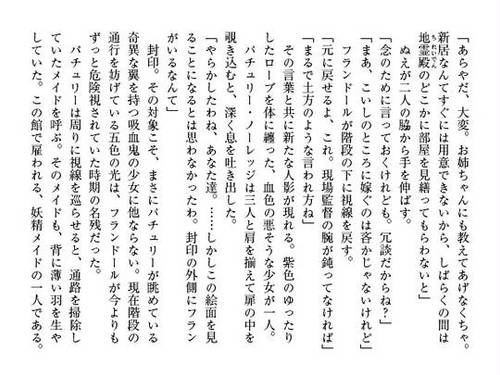 「あらやだ、大変。お姉ちゃんにも教えてあげなくちゃ。
新居なんてすぐには用意できないから、しばらくの間は
地霊殿のどこかに部屋を見繕ってもらわないと」
ぬえが二人の脇から手を伸ばす。
「念のために言っておくけれども、冗談だからね？」
「まあ、こいしのところに嫁ぐのは吝かじゃないけれど」
フランドールが階段の下に視線を戻す。
「元に戻せるよ、これ。現場監督の腕が鈍ってなければ」
「まるで土方のような言われ方ね」
その言葉と共に新たな人影が現れる。紫色のゆったり
したローブを体に纏った、血色の悪そうな少女が一人。
パチュリー・ノーレッジは三人と肩を揃えて扉の中を
覗き込むと、深く息を吐き出した。
「やらかしたわね、あなた達。……しかしこの絵面を見
ることになるとは思わなかったわ。封印の外側にフラン
がいるなんて」
封印。その対象こそ、まさにパチュリーが眺めている
奇異な翼を持つ吸血鬼の少女に他ならない。現在階段の
通行を妨げている五色の光は、フランドールが今よりも
ずっと危険視されていた時期の名残だった。
パチュリーは周りに視線を巡らせると、通路を掃除し
ていたメイドを呼ぶ。そのメイドも、背に薄い羽を生や
していた。この館で雇われる、妖精メイドの一人である。